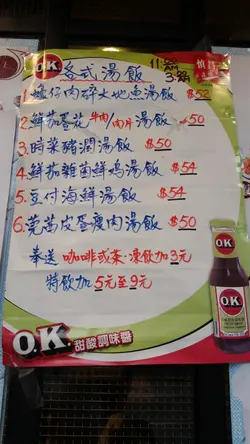 O.K. 各式湯飯 11:00AM
3:00PM
1. 蠔仔肉碎大地魚湯飯 $52
2. 鮮茄蛋花牛肉/肉片湯飯 $50
3. 時菜豬潤湯飯 $50
4. 鮮茄雜菌鮮鸡湯飯 $54
5. 豆付海鮮湯飯 $54
6. 芫茜皮蛋瘦肉湯飯 $50
奉送咖啡或茶·凍飲加3元
特飲加5元至9元
O.K. 甜酸調味醬
O.K